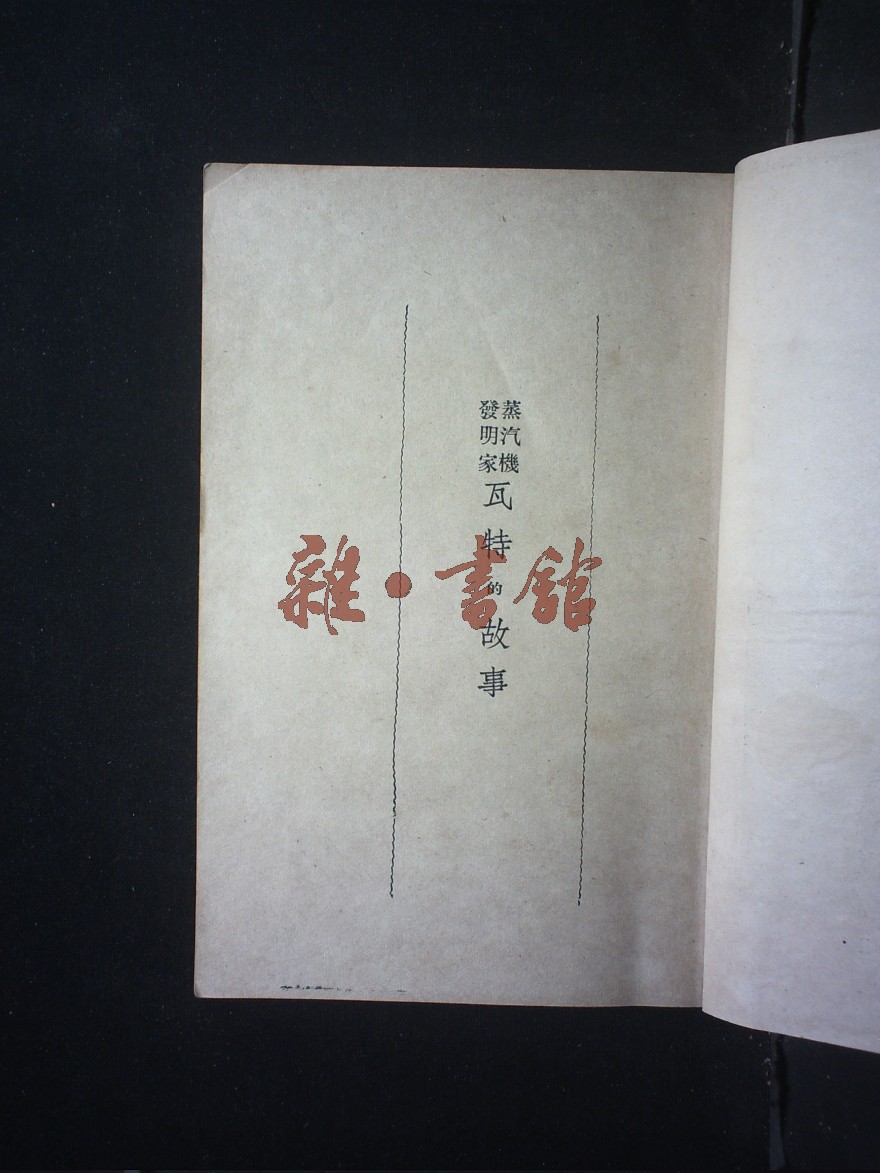 蒸汽機
發明家
瓦特的故事
雜·書館